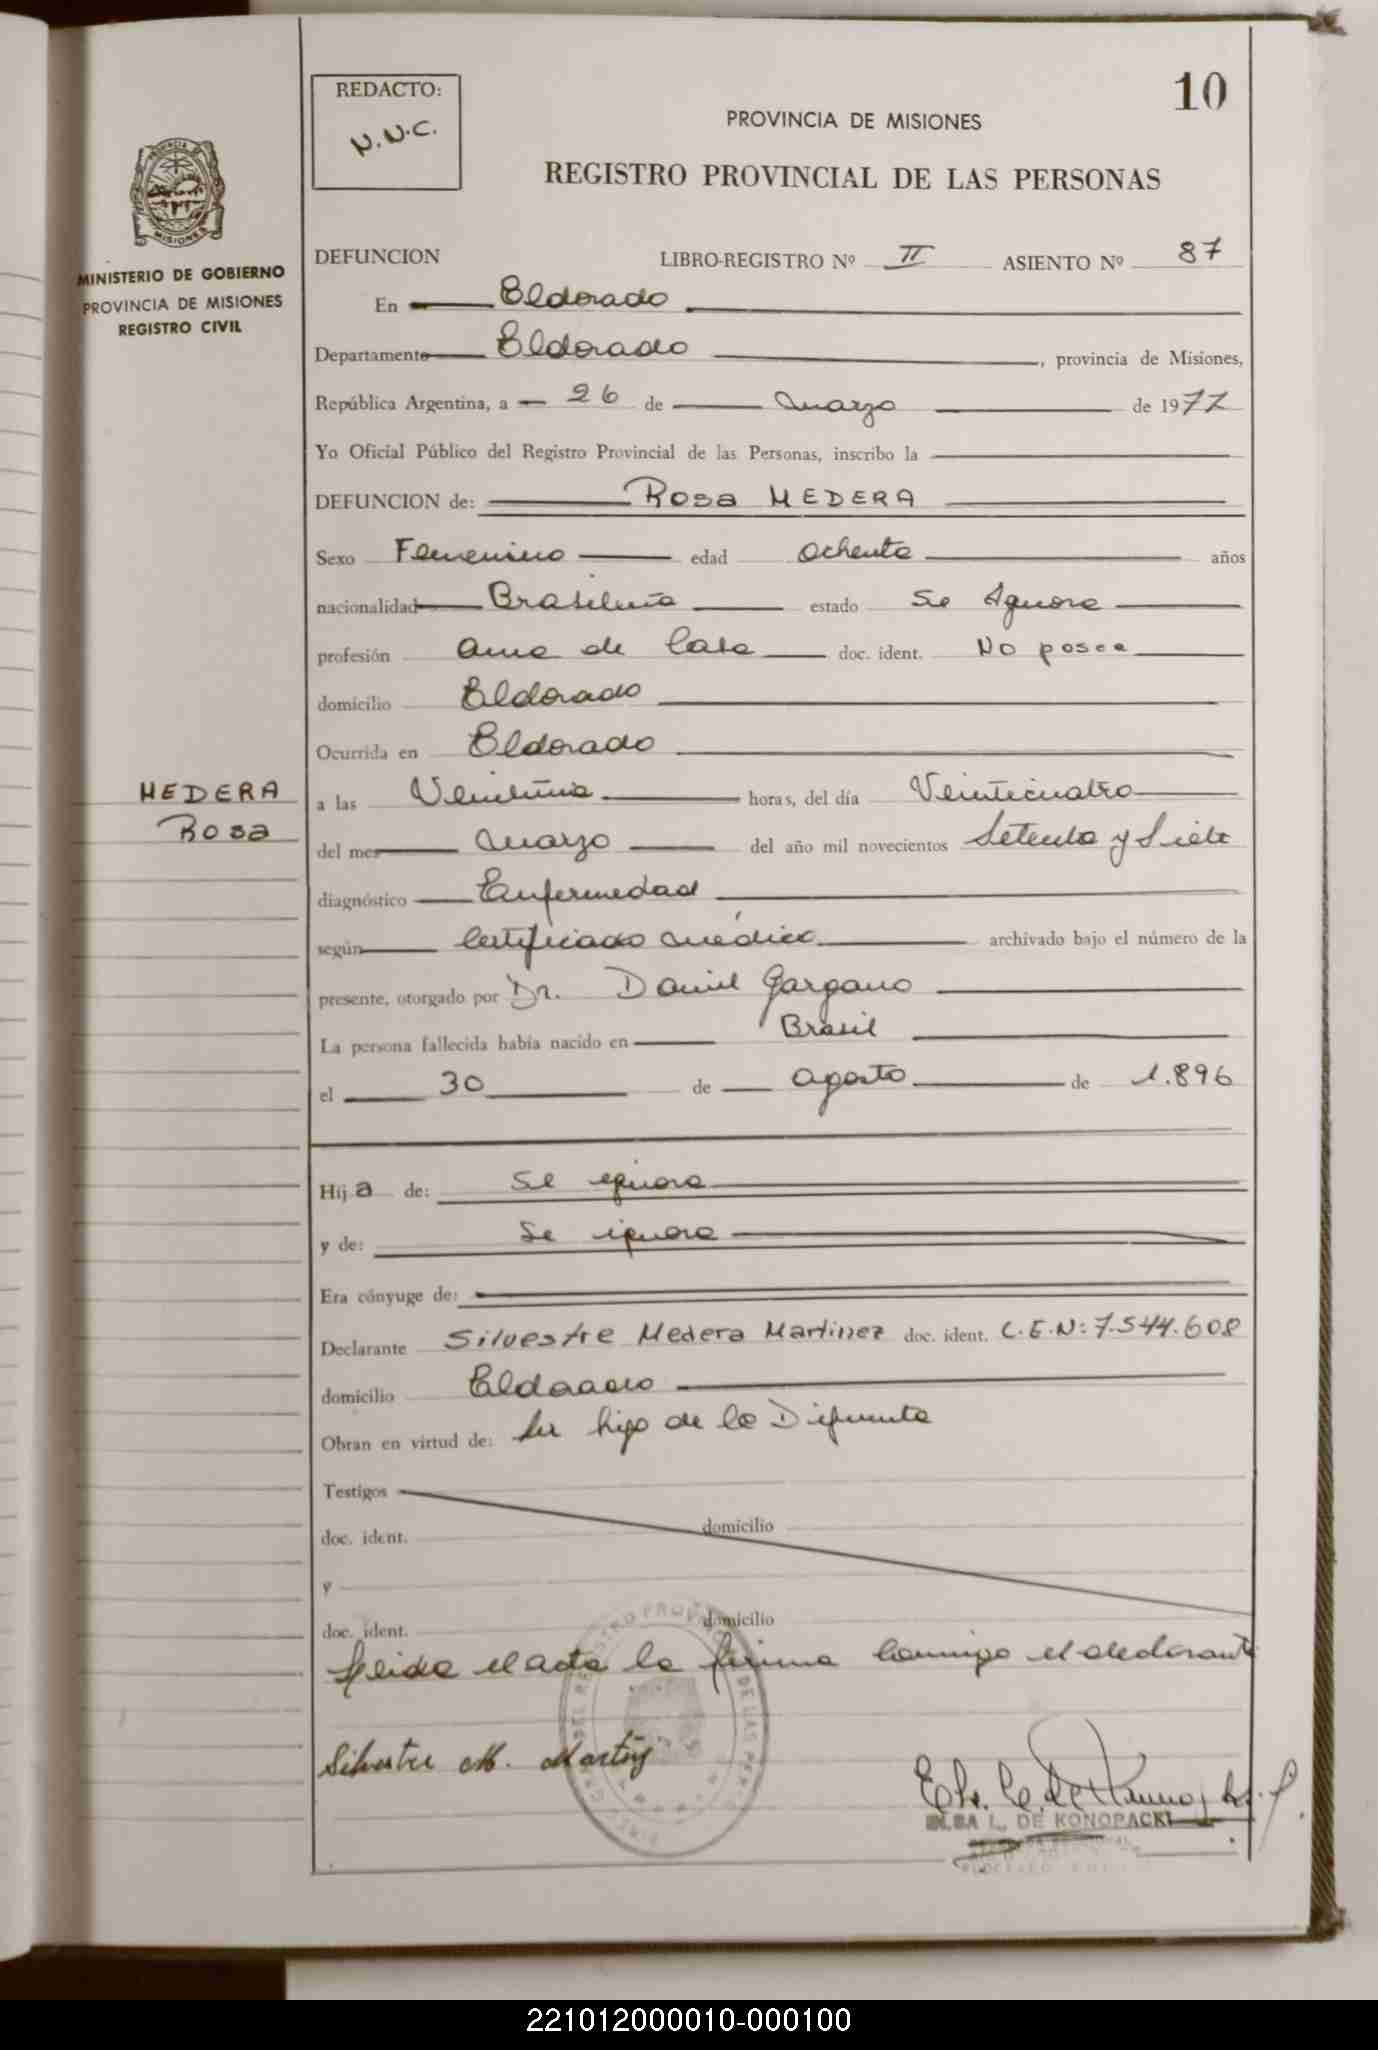 10
REDACTO:
N.N.C.
PROVINCIA DE MISIONES
REGISTRO PROVINCIAL DE LAS PERSONAS
MISIONES
MINISTERIO DE GOBIERNO
PROVINCIA DE MISIONES
REGISTRO CIVIL
DEFUNCION LIBRO-REGISTRO Nº II ASIENTO Nº 87
En Eldorado
Departamento Eldorado, provincia de Misiones,
República Argentina, a 26 de marzo de 1977
Yo Oficial Público del Registro Provincial de las Personas, inscribo la
DEFUNCION de: Rosa MEDERA
Sexo Femenino edad ochenta años
nacionalidad Brasileña estado se Ignora
profesión ama de Casa doc. ident. No posee
domicilio Eldorado
Ocurrida en Eldorado
MEDERA
Rosa
a las Veintiuna horas, del día Veinticuatro
del mes marzo del año mil novecientos Setenta y Siete
diagnóstico Enfermedad
según Certificado médico archivado bajo el número de la
presente, otorgado por Dr. Daniel Gargano
La persona fallecida había nacido en Brasil
el 30 de agosto de 1.896
Hija de: se ignora
y de: se ignora
Era cónyuge de:
Declarante Silvestre Medera Martinez doc. ident. C.E.N: 7.544.608
domicilio Eldorado
Obran en virtud de: ser hijo de la Difunta
Testigos
doc. ident. domicilio
y
doc. ident. domicilio
Leida el acta la firma conmigo el declarante
Silvestre M. Martinz
ELSA L. DE KONOPACKI
221012000010-000100